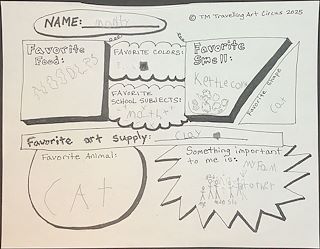 NAME:
© TM Travelling Art Circus 2025
Favorite
Food:
NOODLES
FAVORITE COLORS:
Favorite
Smell:
Kettlecorn
FAVORITE
SCHOOL SUBJECTS:
math
Favorite Shape
Cat
Favorite art supply: Clay
Favorite Animal:
Cat
Something important
to me is:
My Fam
brother